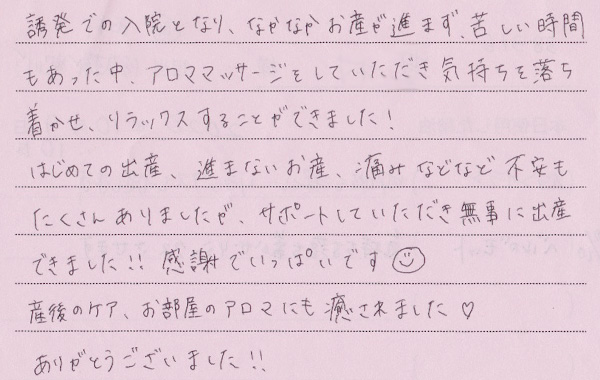 誘発での入院となり、なかなかお産が進まず、苦しい時間
もあった中、アロママッサージをしていただき気持ちを落ち
着かせ、リラックスすることができました!
はじめての出産、進まないお産、痛みなどなど不安も
たくさんありましたが、サポートしていただき無事に出産
できました!! 感謝でいっぱいです☺
産後のケア、お部屋のアロマにも癒されました♡
ありがとうございました!!